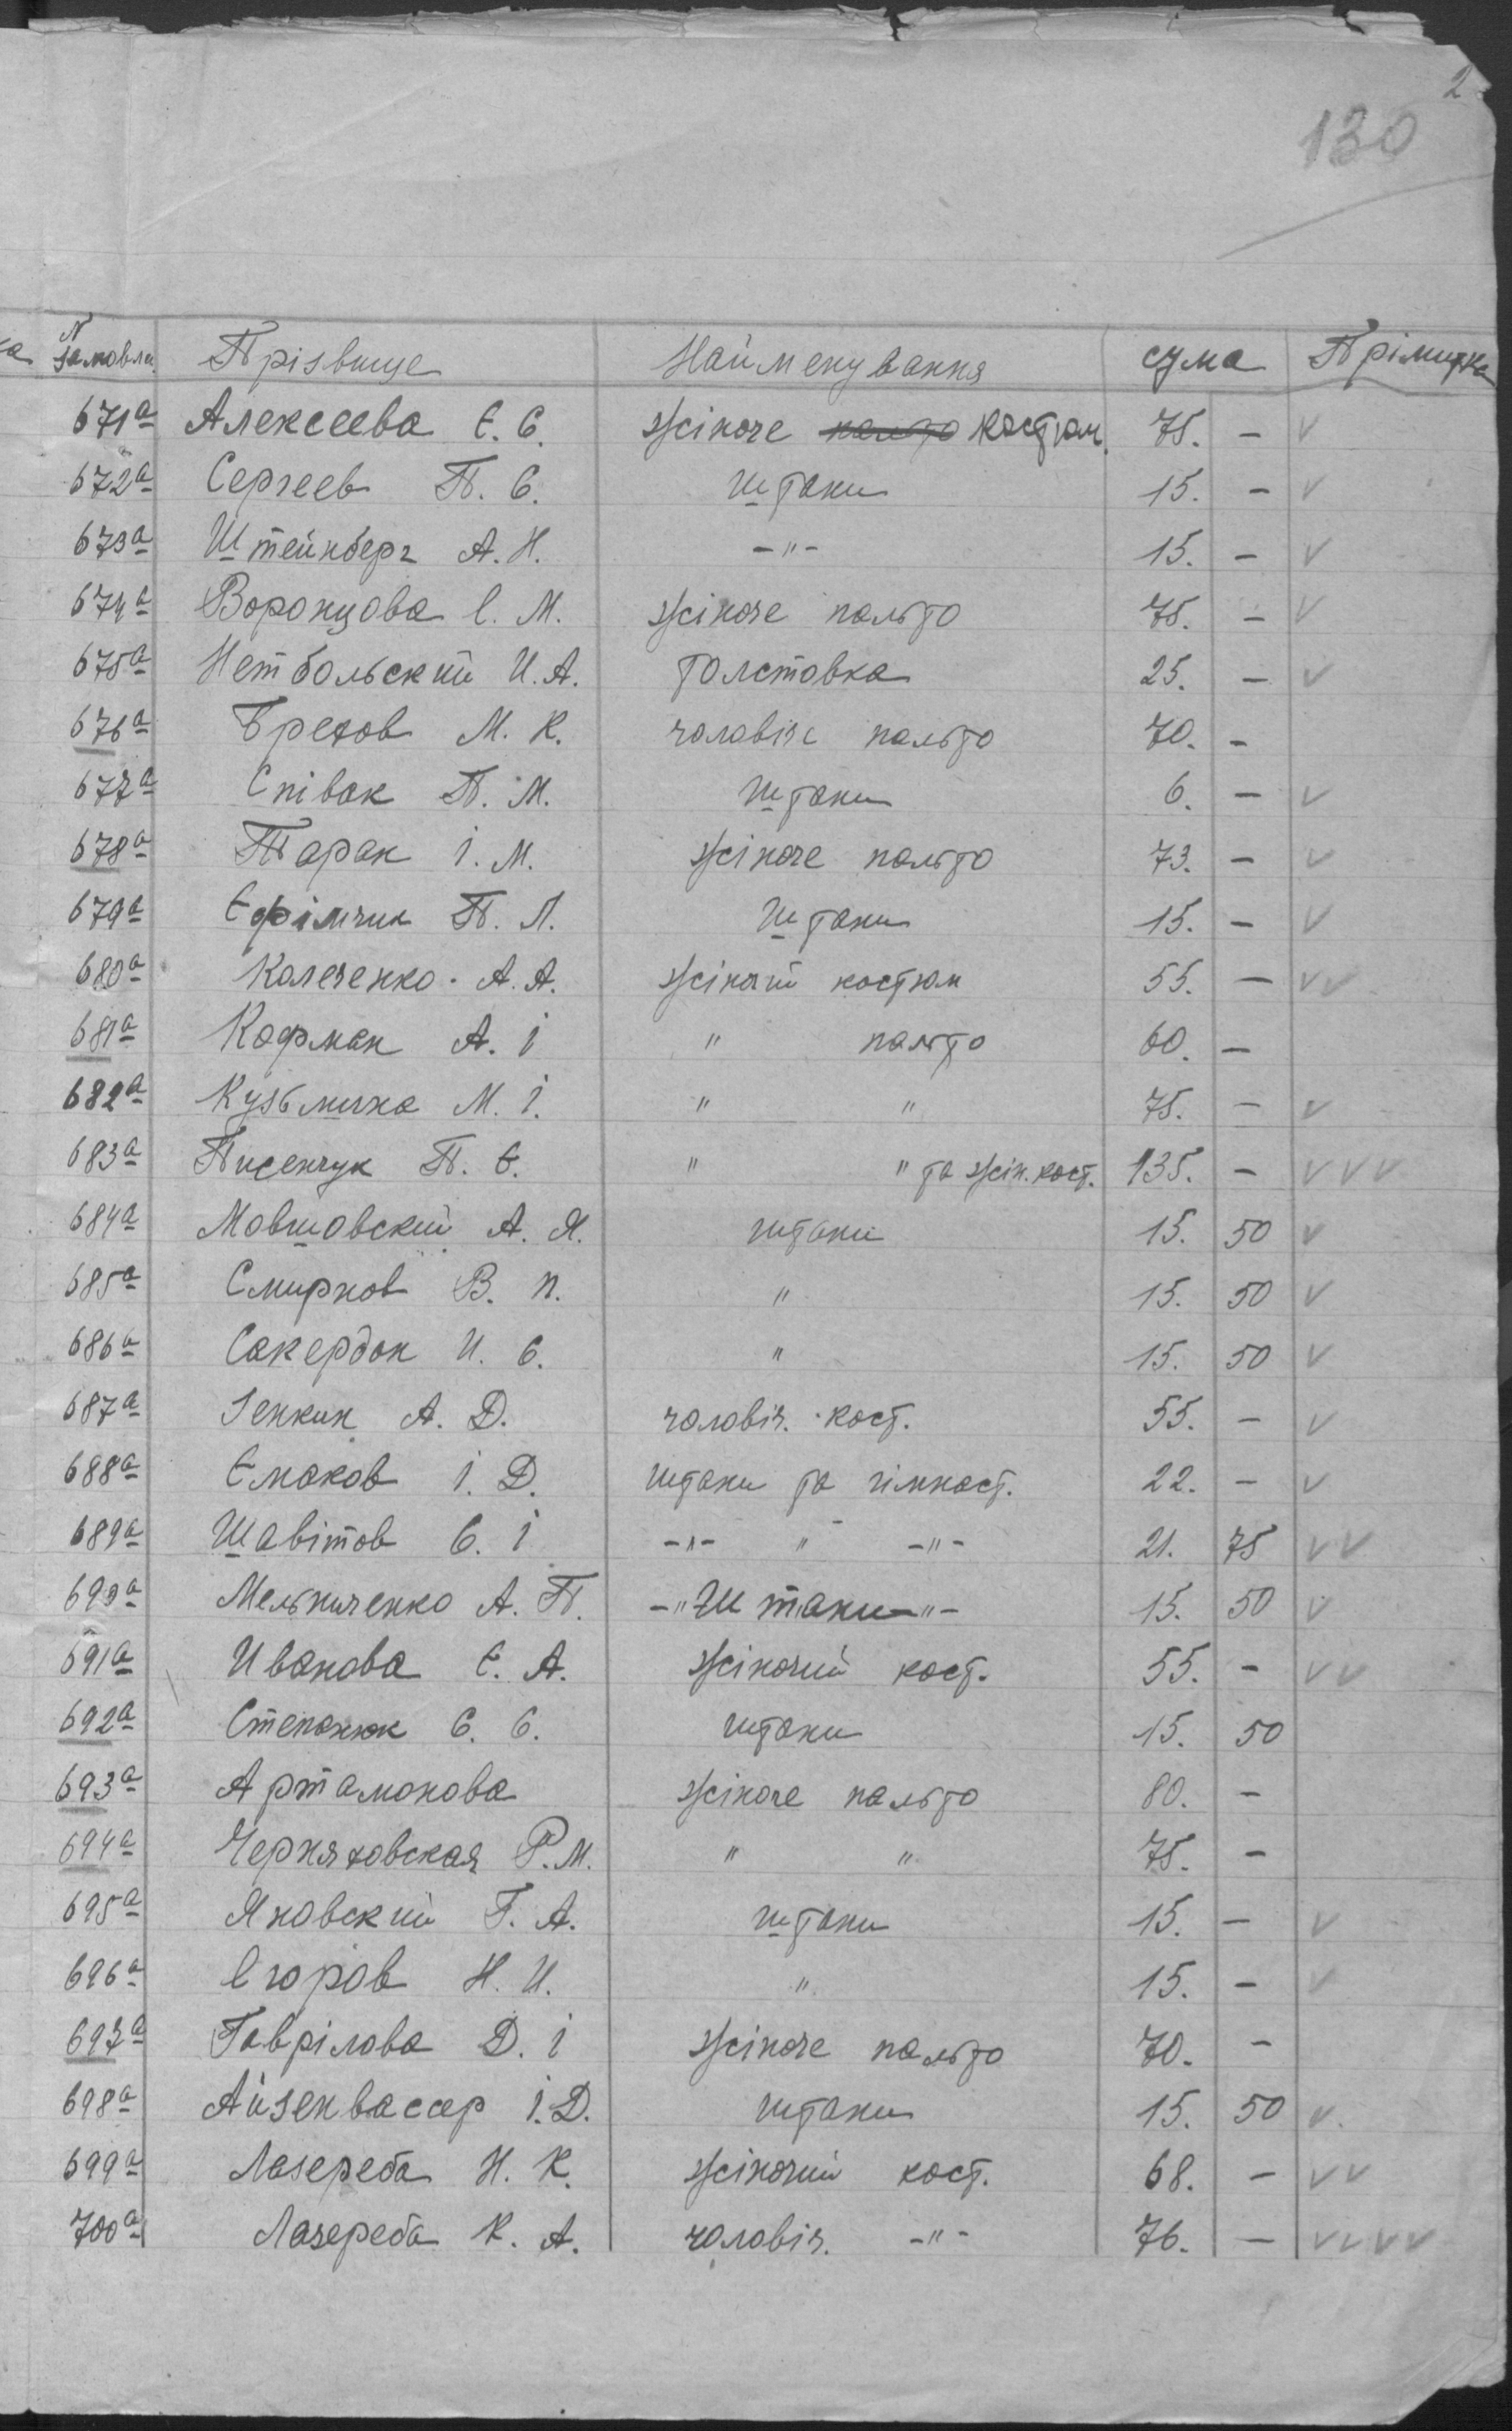 2
130
N замовлн. Прізвище Найменування сума Прімитка
671а Алексеева Є. С. жіноче пальто костюм. 75. — v
672а Сергеев П. С. штани 15. — v
673а Штейнберг А. Н. —"— 15. — v
674а Воронцова Е. М. жіноче пальто 75. — v
675а Нетбольский И. А. толстовка 25. — v
676а Брехов М. К. чоловіче пальто 70. —
677а Співак П. М. штани 6. — v
678а Таран І. М. жіноче пальто 73. — v
679а Єфімчик П. Л. штани 15. — v
680а Калеченко А. А. жіночий костюм 55. — vv
681а Кофман А. І " пальто 60. —
682а Кузьмина М. І. " " 75. — v
683а Писенчук П. Є. " " та жін. кост. 135. — vvv
684а Мовшовский А. Я. штани 15. 50 v
685а Смирнов В. П. " 15. 50 v
686а Сакердон И. С. " 15. 50 v
687а Генкин А. Д. чоловіч. кост. 55. — v
688а Ємаков І. Д. штани та гімнаст. 22. — v
689а Шавітов С. І —"— " —"— 21. 75 vv
690а Мельниченко А. П. —" Штани —"— 15. 50 v
691а Иванова Є. А. жіночий кост. 55. — vv
692а Степанюк С. С. штани 15. 50
693а Артамонова жіноче пальто 80. —
694а Черняховская Р. М. " " 75. —
695а Яновский Г. А. штани 15. — v
696а Егоров Н. И. " 15. — v
697а Гаврілова Д. І жіноче пальто 70. —
698а Айзенвассер І. Д. штани 15. 50 v.
699а Лазереба Н. К. жіночий кост. 68. — vv
700а Лазереба К. А. чоловіч. —"— 76. — vvvv